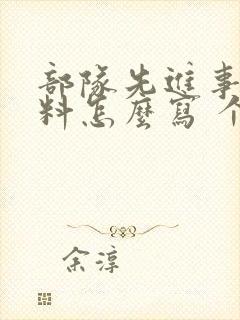 部隊先進事
料怎麼寫 个
余淳